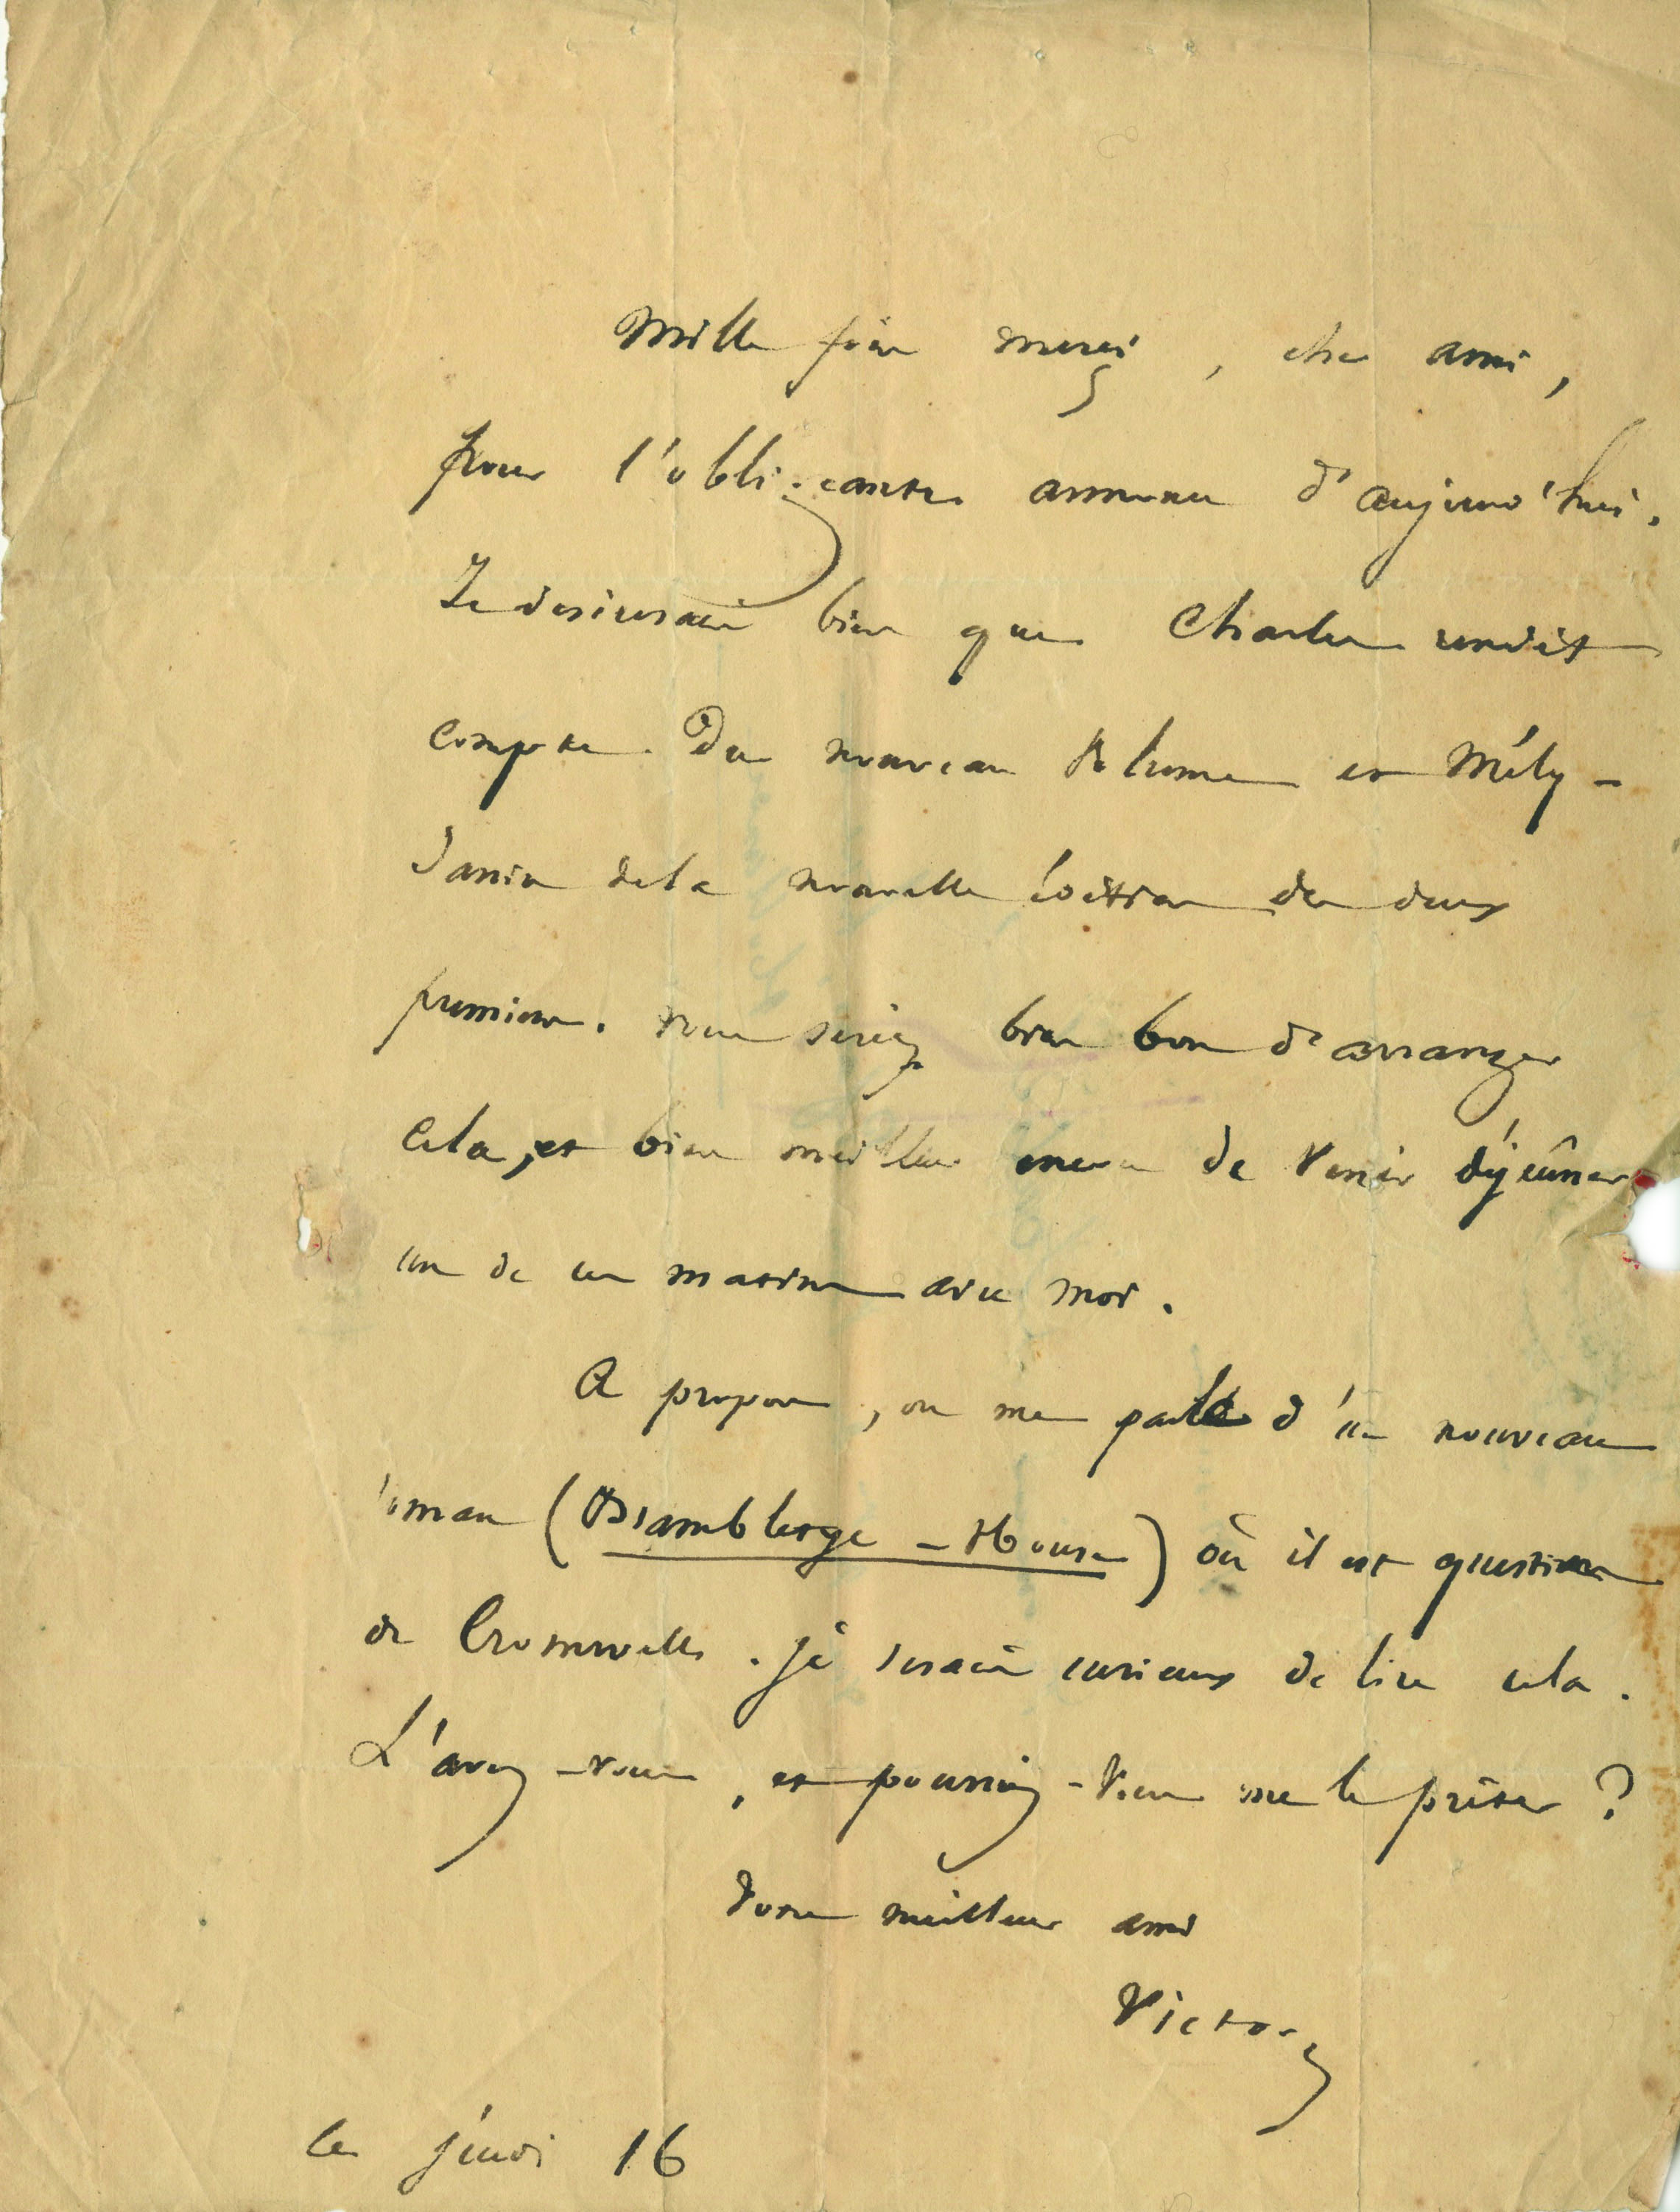 Mille fois merci, cher ami,
pour l'obligeante annonce d'aujourd'hui.
Je désirerais bien que Charles rendît
compte du nouveau volume et Mély-
Janin de la nouvelle édition des deux
premiers. vous seriez bien bon d'arranger
cela, et bien meilleur encore de venir déjeûner
un de ces matins avec moi.
A propos, on me parle d'un nouveau
roman (Brambletye-House) où il est question
de Cromwell. je serais curieux de lire cela.
L'avez-vous, et pourriez-vous me le prêter ?
Votre meilleur ami
Victor
ce jeudi 16